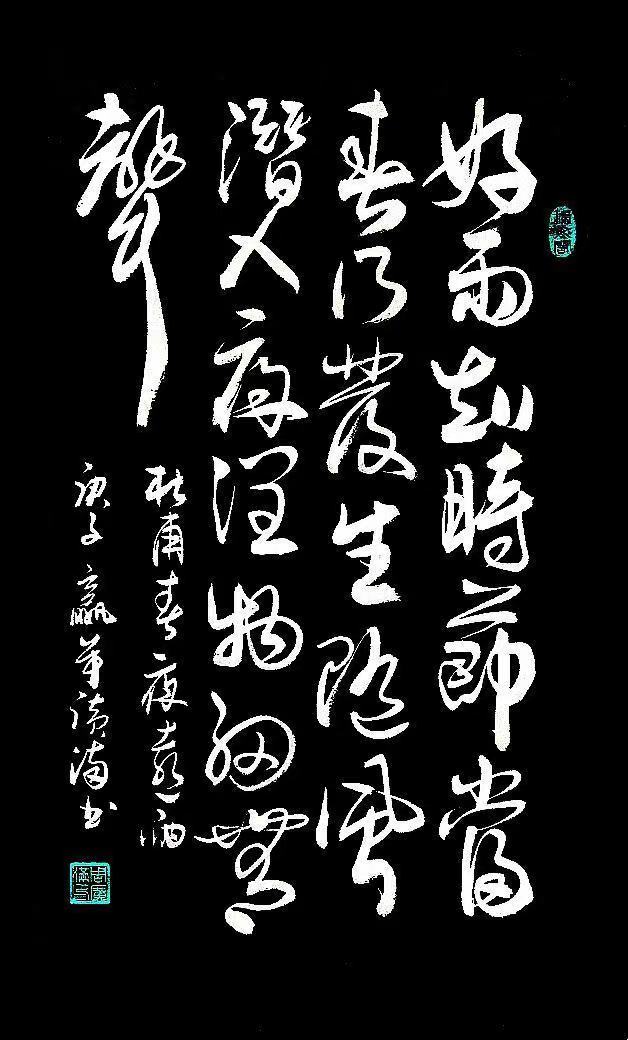 好雨知時節當
春乃發生隨風
潛入夜潤物細無
聲
杜甫春夜喜雨
庚子 滿书